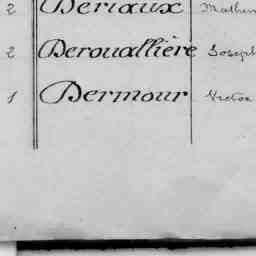 2 Deriaux
2 Derouallière Joseph
1 Dermour Victor